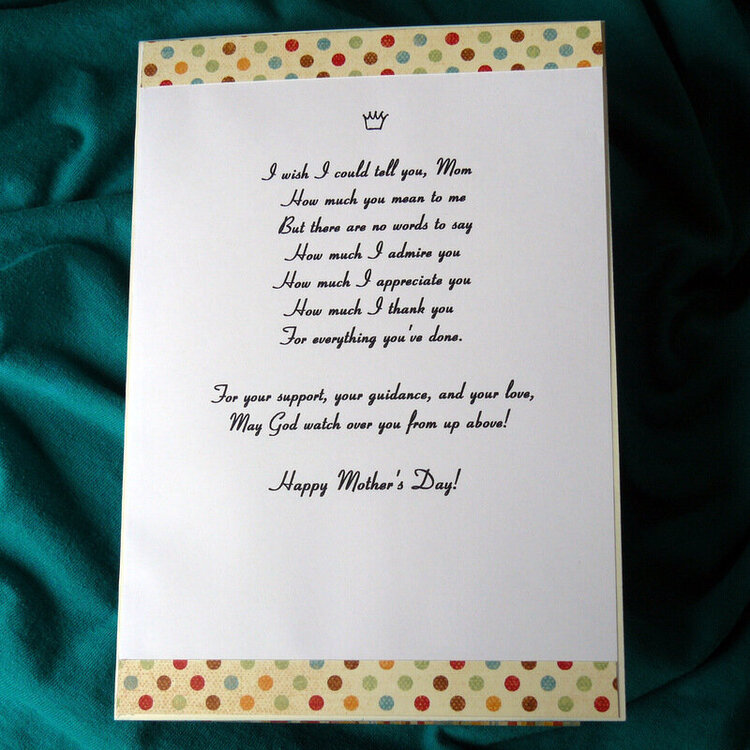 I wish I could tell you, Mom
How much you mean to me
But there are no words to say
How much I admire you
How much I appreciate you
How much I thank you
For everything you've done.
For your support, your guidance, and your love,
May God watch over you from up above!
Happy Mother's Day!